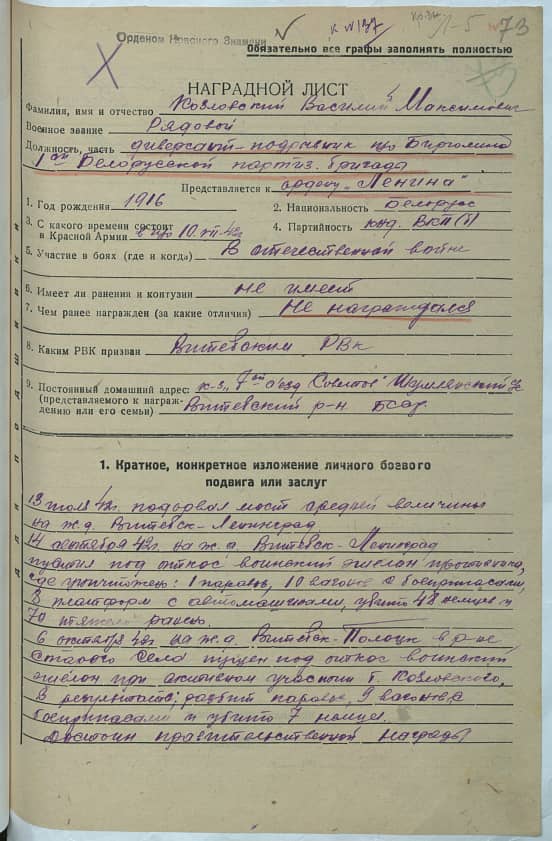 к №137
73
Орденом Невского Знамени
Обязательно все графы заполнять полностью
НАГРАДНОЙ ЛИСТ
Фамилия, имя и отчество Козловский Василий Максимович
Военное звание Рядовой
Должность, часть диверсант-подрывник
1ой Белорусской партиз. бригады
Представляется к ордену "Ленина"
1. Год рождения 1916
2. Национальность Белорус
3. С какого времени состоит в Красной Армии по 10.VII.42г
4. Партийность канд. ВКП(б)
5. Участие в боях (где и когда) В отечественной войне
6. Имеет ли ранения и контузии не имеет
7. Чем ранее награжден (за какие отличия) Не награждался
8. Каким РВК призван Витебским РВК
9. Постоянный домашний адрес: к-з "7ой съезд Советов" Шумлянский с/с
(представляемого к награж-
дению или его семьи) Витебский р-н БССР
1. Краткое, конкретное изложение личного боевого
подвига или заслуг
13 июля 42г. подорвал мост средней величины
на ж.д. Витебск-Ленинград
14 сентября 42г. на ж.д. Витебск-Ленинград
пустил под откос воинский эшелон противника,
где уничтожено: 1 паровоз, 10 вагонов с боеприпасами,
8 платформ с автомашинами, убито 48 немцев и
70 тяжело ранено.
6 октября 42г на ж.д. Витебск-Полоцк в р-не
Старого Села пущен под откос воинский
эшелон при активном участии т. Козловского,
В результате: разбит паровоз, 9 вагонов с
боеприпасами и убито 7 немцев.
Достоин правительственной награды